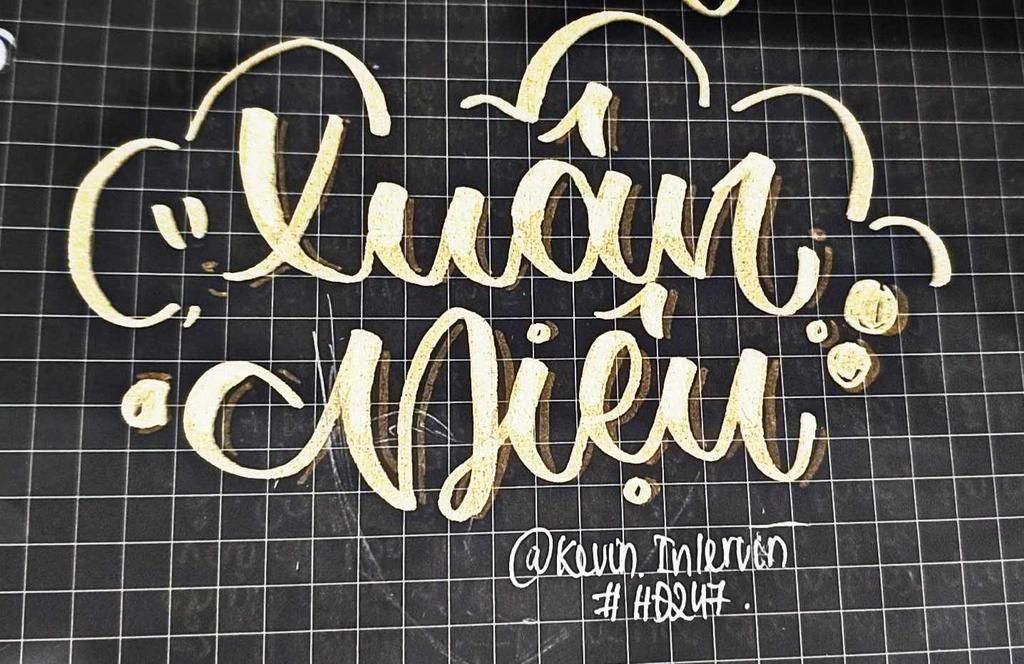 Xuân
Diệu
@Kevin. Intervin
# HD247.